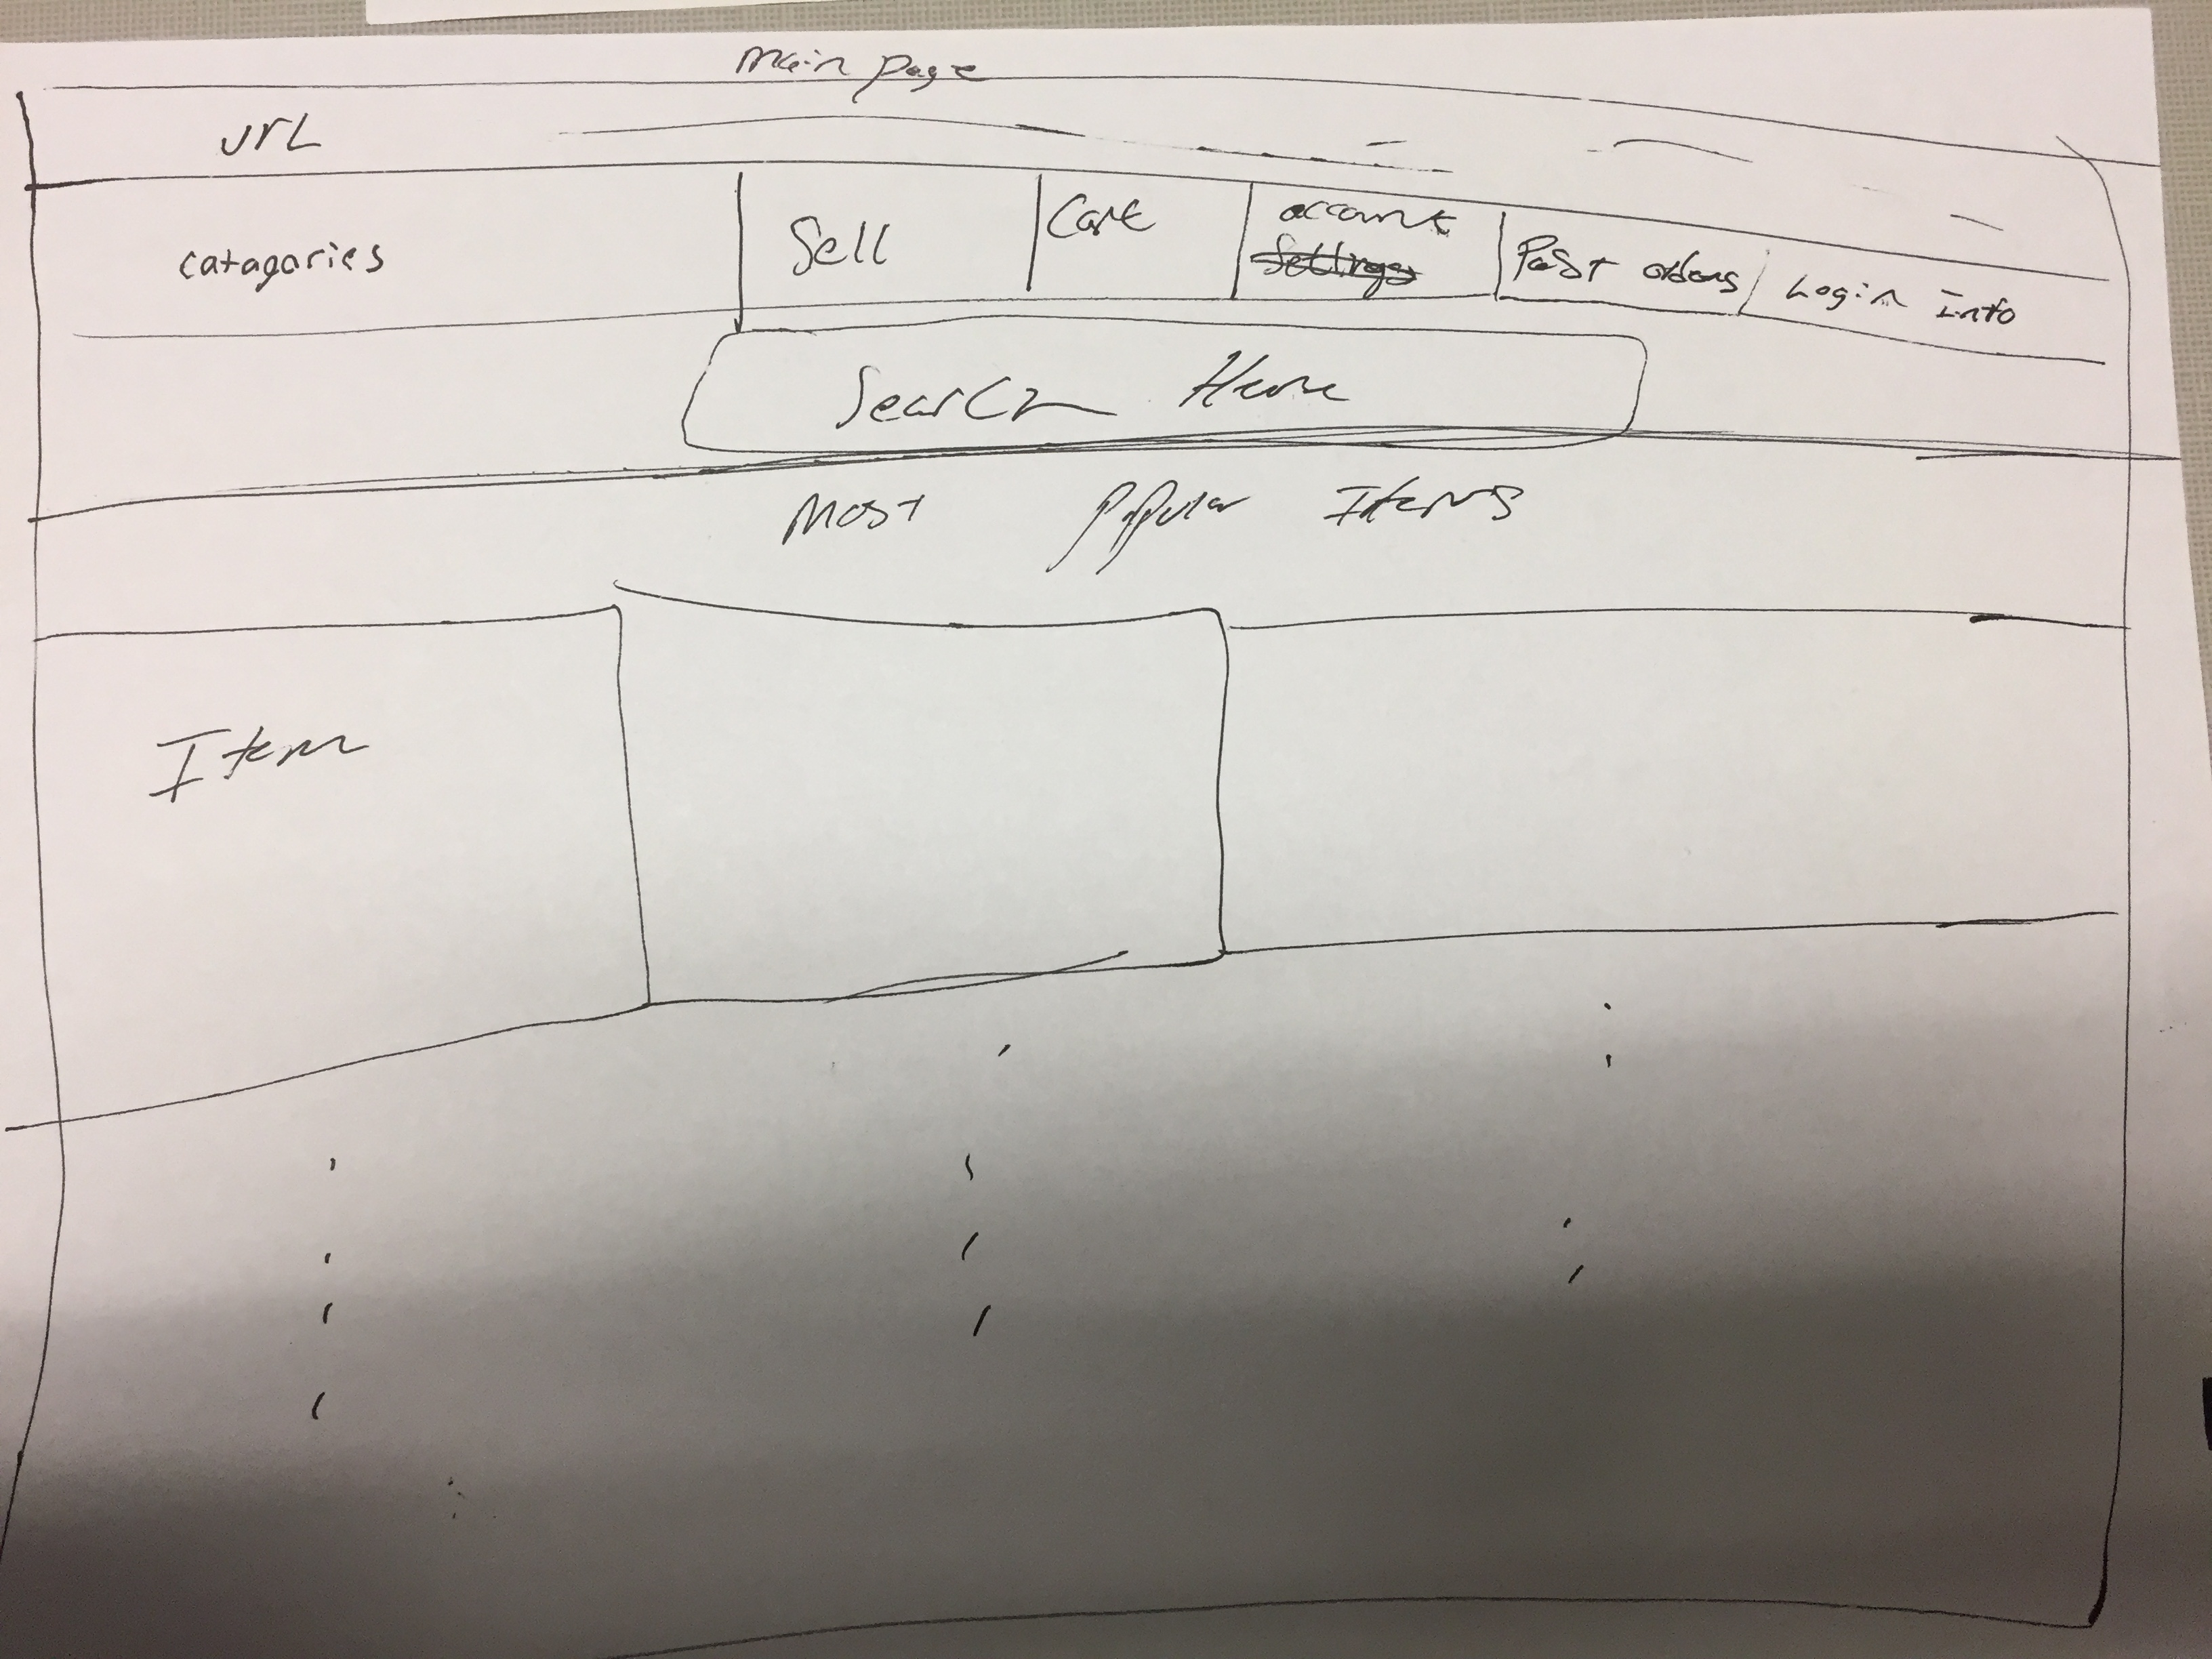 Main Page
URL
Catagories
Sell
Cart
account
Settings
Past orders
Login Info
Search Here
Most Popular Items
Item